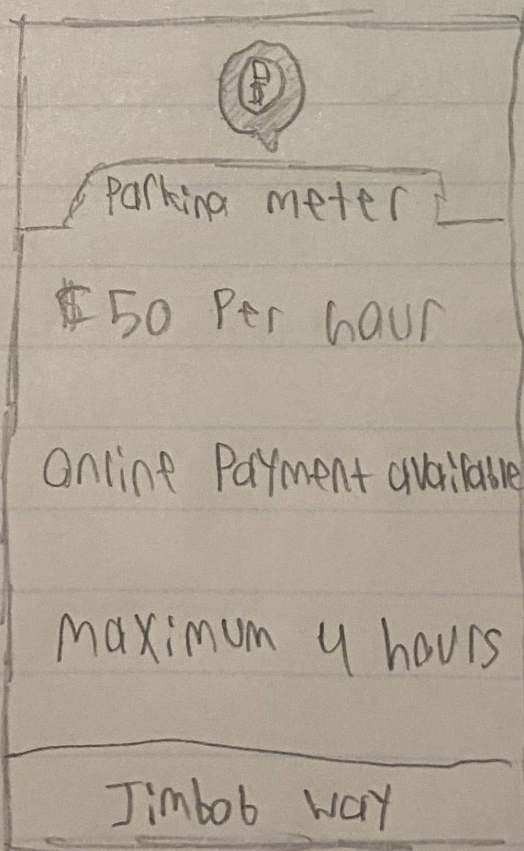 P
$
Parking meter
$50 Per hour
Online Payment available
Maximum 4 hours
Jimbob way